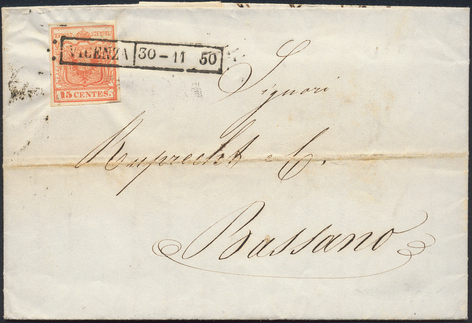 VICENZA 30-11 50
15 CENTES.
Signori
Ruprecht & C.
Bassano